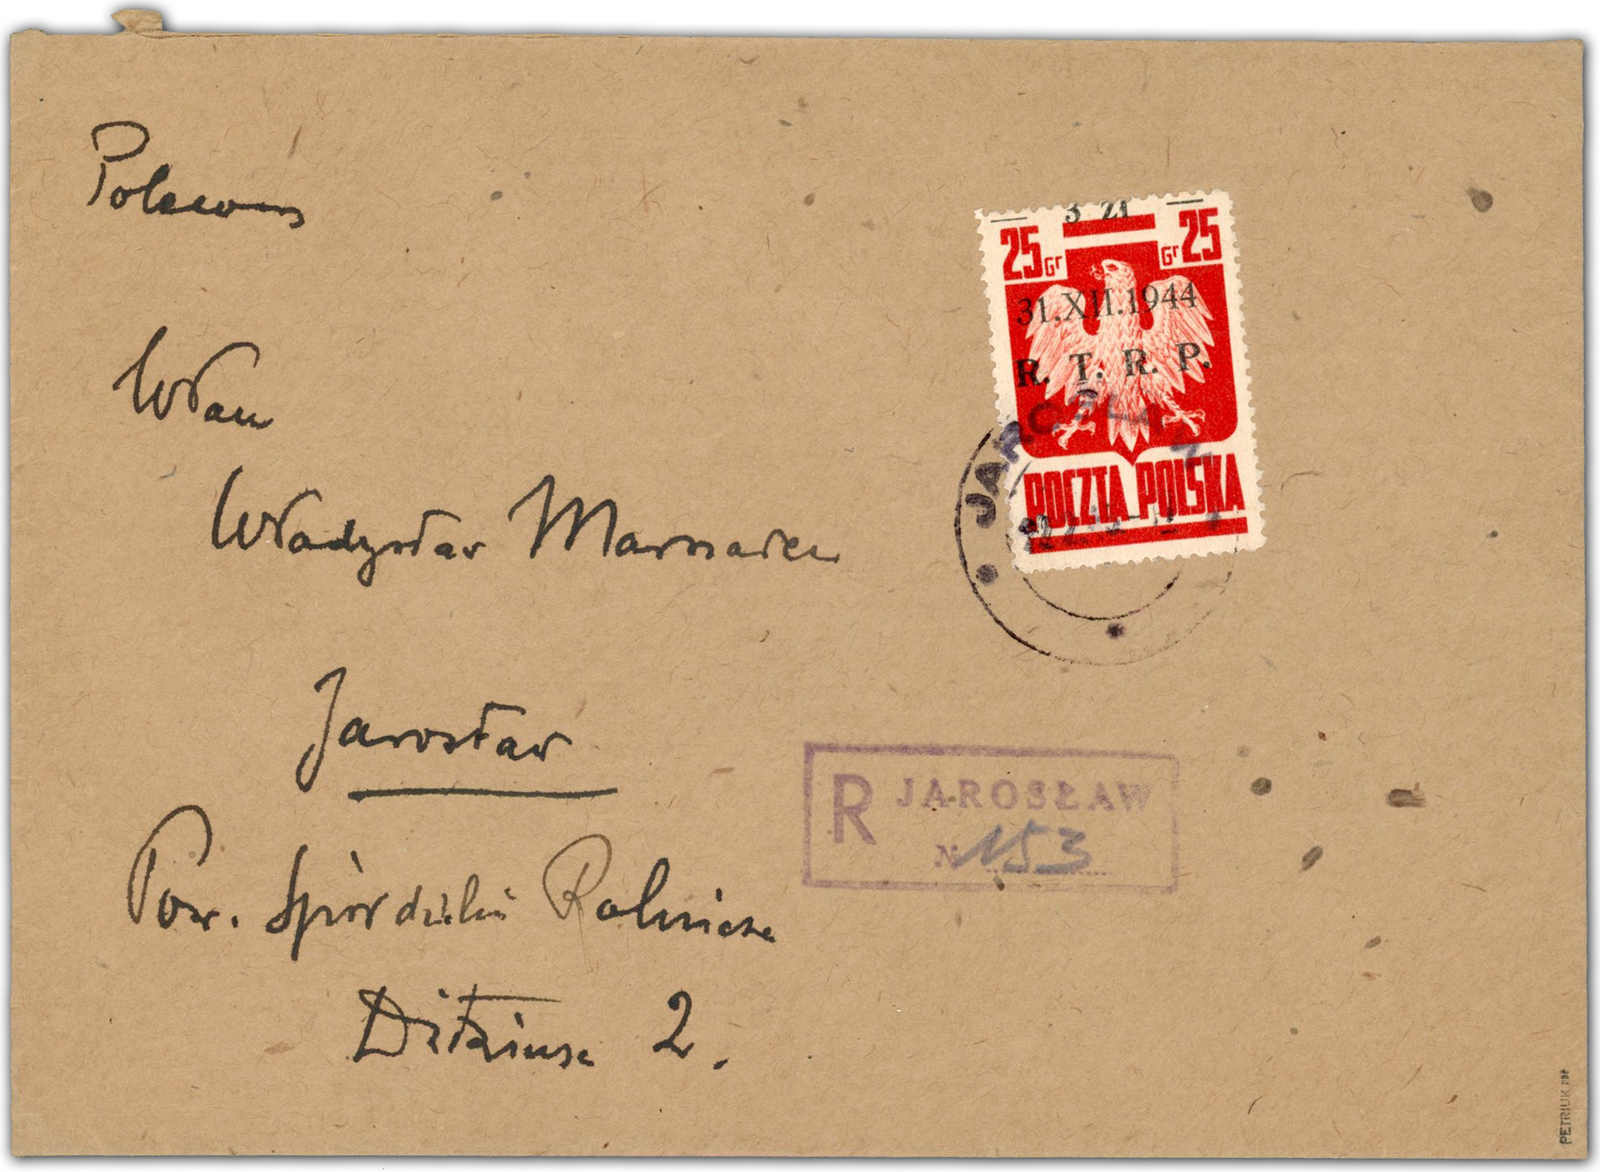 Polecony
3 zł
25 Gr Gr 25
31.XII.1944
R. T. R. P.
POCZTA POLSKA
JAROSŁAW
WPan
Władysław
Jarosław
R JAROSŁAW
N 153
Pow. Spółdzielni Rolnicza
2.
PETRIUK